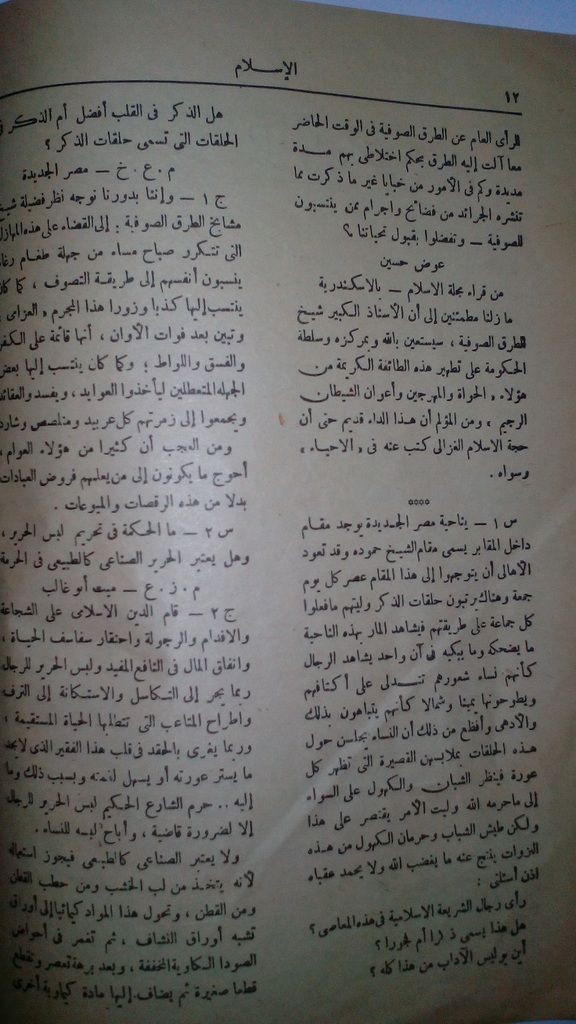 الإسلام
١٢
للرأى العام عن الطرق الصوفية فى الوقت الحاضر
مما آلت إليه الطرق بحكم اختلاطى بهم مدة
مديدة وكم فى الأمور من خبايا غير ما ذكرت مما
تنشره الجرائد من فضائح واجرام ممن ينتسبون
للصوفية — وتفضلوا بقبول تحياتنا ؟
عوض حسين
من قراء مجلة الاسلام — بالاسكندرية
ما زلنا مطمئنين إلى أن الأستاذ الكبير شيخ
الطرق الصوفية ، سيستعين بالله وبمركزه وسلطة
الحكومة على تطهير هذه الطائفة الكريمة من
هؤلاء « الحواة والمهرجين وأعوان الشيطان
الرجيم ، ومن المؤلم أن هذا الداء قديم حتى أن
حجة الاسلام الغزالى كتب عنه فى « الاحياء »
وسواه .
****
س ١ — بناحية مصر الجديدة يوجد مقام
داخل المقابر يسمى مقام الشيخ حموده وقد تعود
الاهالى أن يتوجهوا إلى هذا المقام عصر كل يوم
جمعة وهناك يرتبون حلقات الذكر وليتهم مافعلوا
كل جماعة على طريقتهم فيشاهد المار بهذه الناحية
ما يضحكه وما يبكيه فى آن واحد يشاهد الرجال
كأنهم نساء شعورهم تتدلى على أكتافهم
ويطوحونها يمينا وشمالا كأنهم يتباهون بذلك
والأدهى وأفظع من ذلك أن النساء يجلسن حول
هذه الحلقات بملابسهن القصيرة التى تظهر كل
عورة فينظر الشبان والكهول على السواء
إلى ماحرمه الله وليت الأمر يقتصر على هذا
ولكن طيش الشباب وحرمان الكهول من هذه
النزوات ينتج عنه ما يغضب الله ولا يحمد عقباه
اذن أسئلتى :
رأى رجال الشريعة الاسلامية فى هذه المعاصى ؟
هل هذا يسمى ذكرا أم فجورا ؟
أين بوليس الآداب من هذا كله ؟
هل الذكر فى القلب أفضل أم الذكر فى
الحلقات التى تسمى حلقات الذكر ؟
م . ع . خ — مصر الجديدة
ج ١ — وإننا بدورنا نوجه نظر فضيلة شيخ
مشايخ الطرق الصوفية : إلى القضاء على هذه المهازل
التى تتكرر صباح مساء من جهلة طغام رعاع
ينسبون أنفسهم إلى طريقة التصوف ، كما كان
ينتسب إليها كذبا وزورا هذا المجرم « العزامى »
وتبين بعد فوات الأوان ، أنها قائمة على الكفر
والفسق واللواط ؛ وكما كان ينتسب إليها بعض
الجهله المتعطلين ليأخذوا العوايد ، ويفسدوا العقائد
ويجمعوا إلى زمرتهم كل عربيد ومتلصص وشارد
ومن العجب أن كثيرا من هؤلاء العوام ،
أحوج ما يكونون إلى من يعلمهم فروض العبادات
بدلا من هذه الرقصات والميوعات .
س ٢ — ما الحكمة فى تحريم لبس الحرير ،
وهل يعتبر الحرير الصناعى كالطبيعى فى الحرمة
م . ز . ع — ميت أبو غالب
ج ٢ — قام الدين الاسلامى على الشجاعة
والاقدام والرجولة واحتقار سفاسف الحياة ،
وانفاق المال فى النافع المفيد ولبس الحرير للرجال
ربما يجر إلى التكاسل والاستكانة إلى الترف
واطراح المتاعب التى تتطلبها الحياة المستقيمة ،
وربما يغرى بالحقد فى قلب هذا الفقير الذى لا يجد
ما يستر عورته أو يسهل لقمته وبسبب ذلك وما
إليه .. حرم الشارع الحكيم لبس الحرير للرجال
إلا لضرورة قاضية ، وأباح لبسه للنساء .
ولا يعتبر الصناعى كالطبيعى فيجوز استعماله
لأنه يتخذ من لب الخشب ومن حطب القطن
ومن القطن ، وتحول هذا المواد كيمائيا إلى أوراق
تشبه أوراق النشاف ، ثم تغمر فى أحواض
الصودا الكاوية المخففة ، وبعد برهة تعصر وتقطع
قطعا صغيرة ثم يضاف إليها مادة كيماوية أخرى